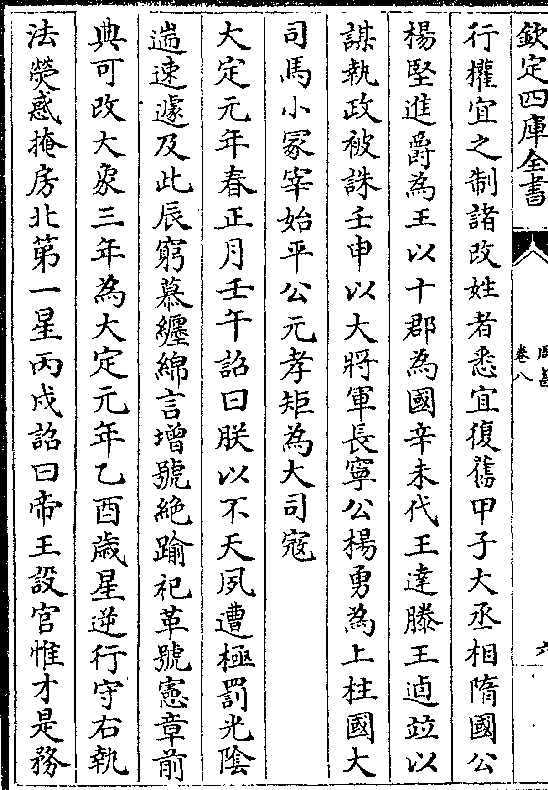 欽定四庫全書
卷八
六
行權宜之制諸改姓者悉宜復舊甲子大丞相隋國公
楊堅進爵為王以十郡為國辛未代王達滕王逌竝以
謀執政被誅壬申以大將軍長寧公楊勇為上柱國大
司馬小冢宰始平公元孝矩為大司寇
大定元年春正月壬午詔曰朕以不天夙遭極罰光陰
遄速遽及此辰窮慕纏綿言增號絶踰祀革號憲章前
典可改大象三年為大定元年乙酉歳星逆行守右執
法熒惑掩房北第一星丙戌詔曰帝王設官惟才是務